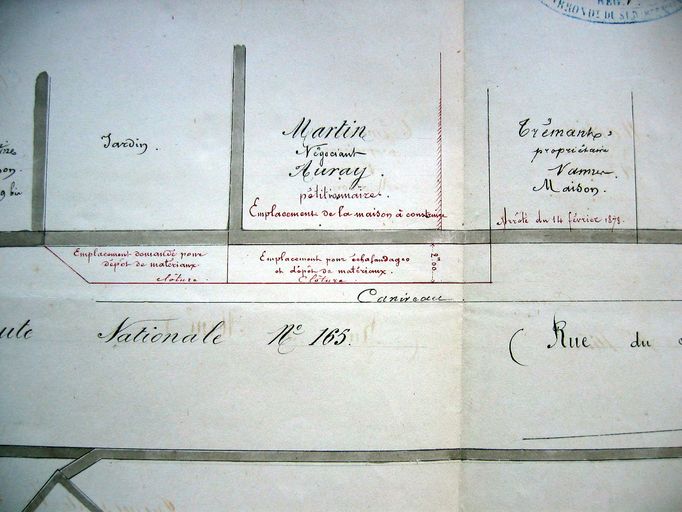 REG.
ARRONDT DU SUD
Jardin.
Martin
Négociant
Auray.
pétitionnaire.
Emplacement de la maison à construire
Trémant,
propriétaire
Vannes
Maison.
Arrêté du 14 février 1878.
9 bis
Emplacement demandé pour
dépôt de matériaux
clôture
Emplacement pour échafaudages
et dépôt de matériaux.
Clôture
2m00
Caniveau
Nationale No 165.
( Rue du